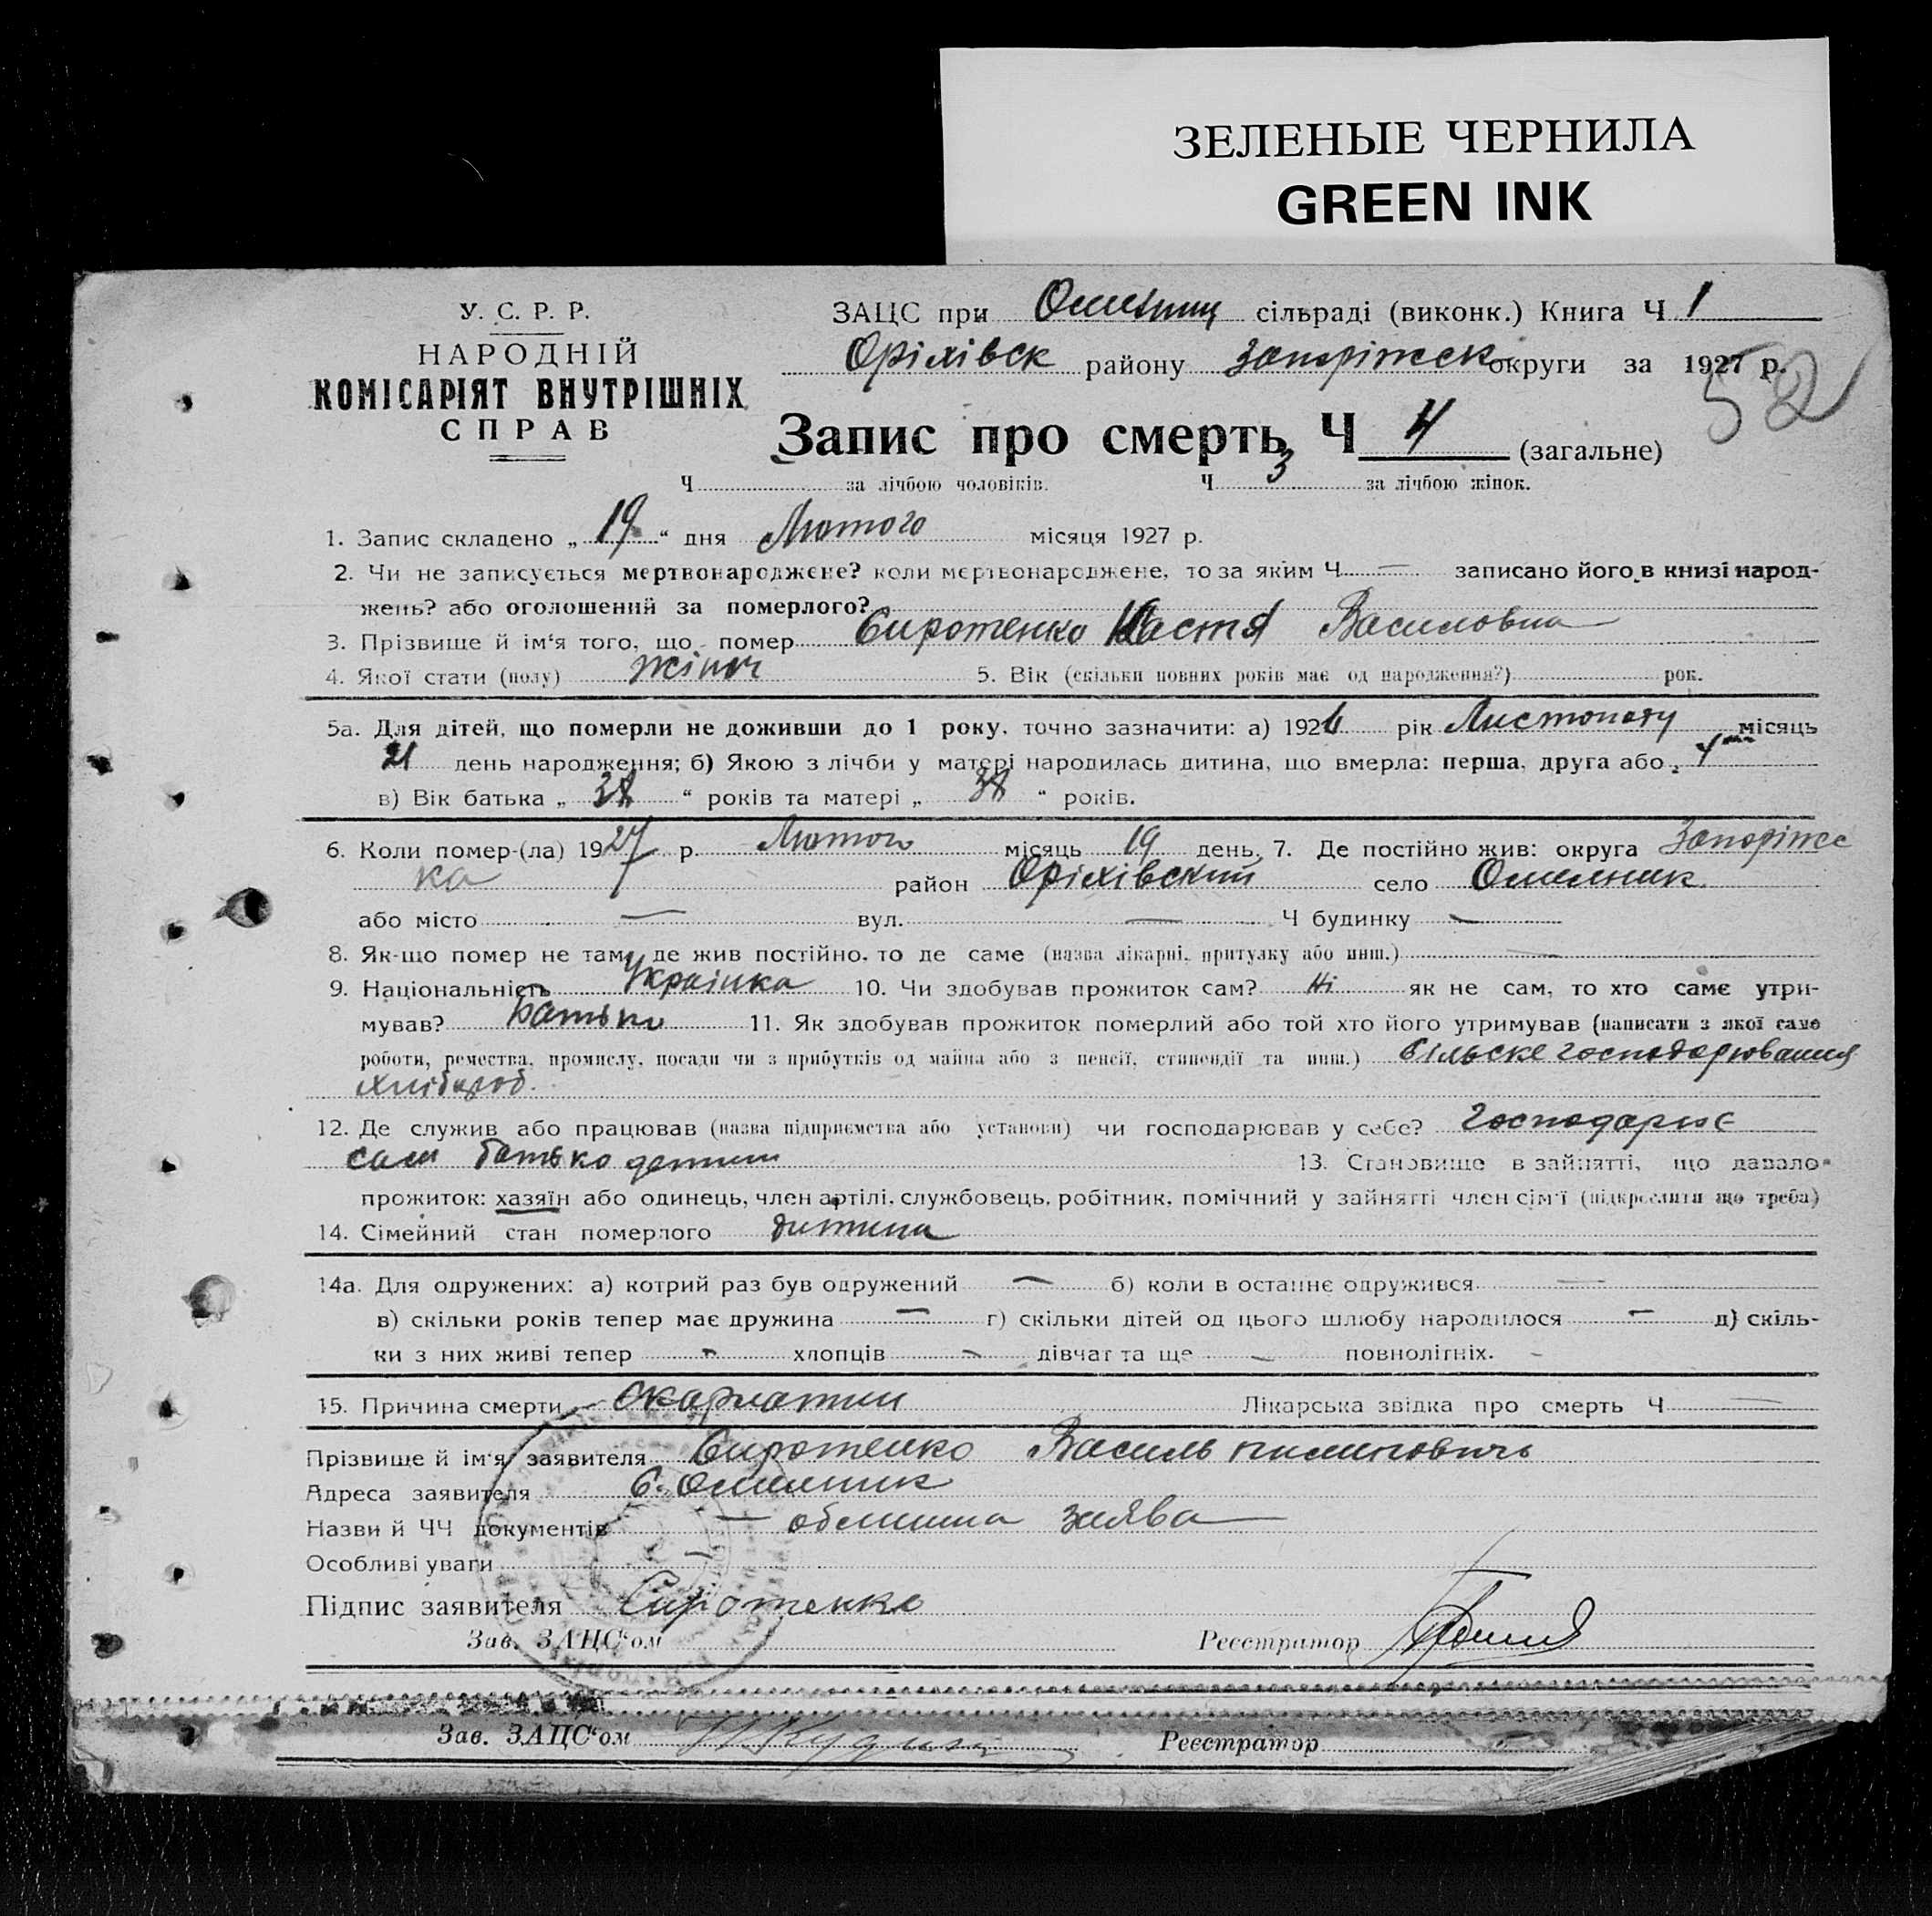 ЗЕЛЕНЫЕ ЧЕРНИЛА
GREEN INK
У. С. Р. Р.
НАРОДНІЙ
КОМІСАРІЯТ ВНУТРІШНІХ
СПРАВ
ЗАЦС при сільраді (виконк.) Книга Ч 1
Оріхівск району Запоріжск округи за 1927 р.
52
Запис про смерть Ч 4 (загальне)
Ч за лічбою чоловіків. Ч 3 за лічбою жінок.
1. Запис складено „ 19 “ дня Лютого місяця 1927 р.
2. Чи не записується мертвонароджене? коли мертвонароджене, то за яким Ч — записано його в книзі народ-
жень? або оголошений за померлого?
3. Прізвище й ім‘я того, що помер Сиротенко Настя Василовна
4. Якої стати (полу) жіноч 5. Вік (скільки повних років має од народження?) рок.
5а. Для дітей, що померли не доживши до 1 року, точно зазначити: а) 1926 рік Листопаду місяць
21 день народження; б) Якою з лічби у матері народилась дитина, що вмерла: перша, друга або 4
в) Вік батька „ 38 “ років та матері „ 38 “ років.
6. Коли помер-(ла) 1927 р. Лютого місяць 19 день. 7. Де постійно жив: округа Запоріжс
ка район Оріхівский село Омельник
або місто — вул. — Ч будинку —
8. Як-що помер не там, де жив постійно, то де саме (назва лікарні, притулку або инш.) —
9. Національність Українка 10. Чи здобував прожиток сам? Ні як не сам, то хто саме утри-
мував? Батько 11. Як здобував прожиток померлий або той хто його утримував (написати з якої само
роботи, ремества, промислу, посади чи з прибутків од майна або з пенсії, стипендії та инш.) Сільске господарювання
хлібороб.
12. Де служив або працював (назва підприємства або установи) чи господарював у себе? Господарює
сам батько детини 13. Становище в зайнятті, що давало
прожиток: хазяїн або одинець, член артілі, службовець, робітник, помічний у зайнятті член сім‘ї (підкреслити що треба)
14. Сімейний стан померлого дитина
14а. Для одружених: а) котрий раз був одружений — б) коли в останнє одружився —
в) скільки років тепер має дружина — г) скільки дітей од цього шлюбу народилося — д) скіль-
ки з них живі тепер - хлопців - дівчат та ще - повнолітніх. -
15. Причина смерти Скарлатин Лікарська звідка про смерть Ч —
Прізвище й ім‘я заявителя Сиротенко Василь пилиповичь
Адреса заявителя С. Омельник
Назви й ЧЧ документів — заява —
Особливі уваги —
Підпис заявителя Сиротенко
Зав. ЗАЦС‘ом Реєстратор
Зав. ЗАЦС‘ом Реєстратор